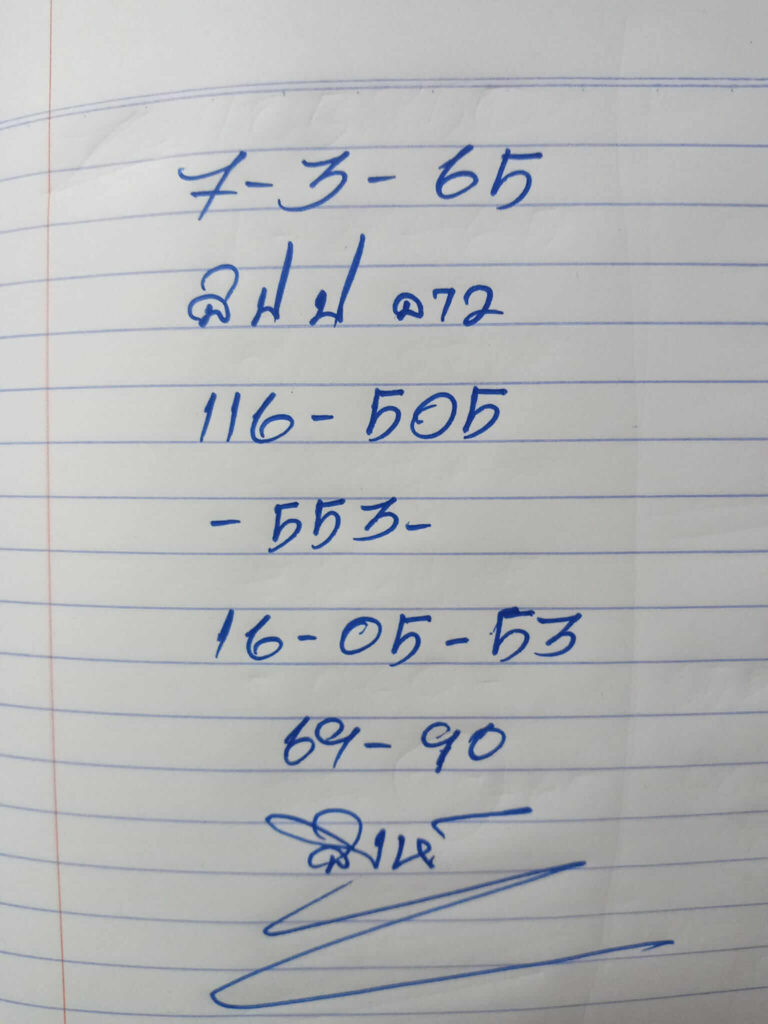 7-3-65
สปป ลาว
116-505
-553-
16-05-53
69-90
สิงห์